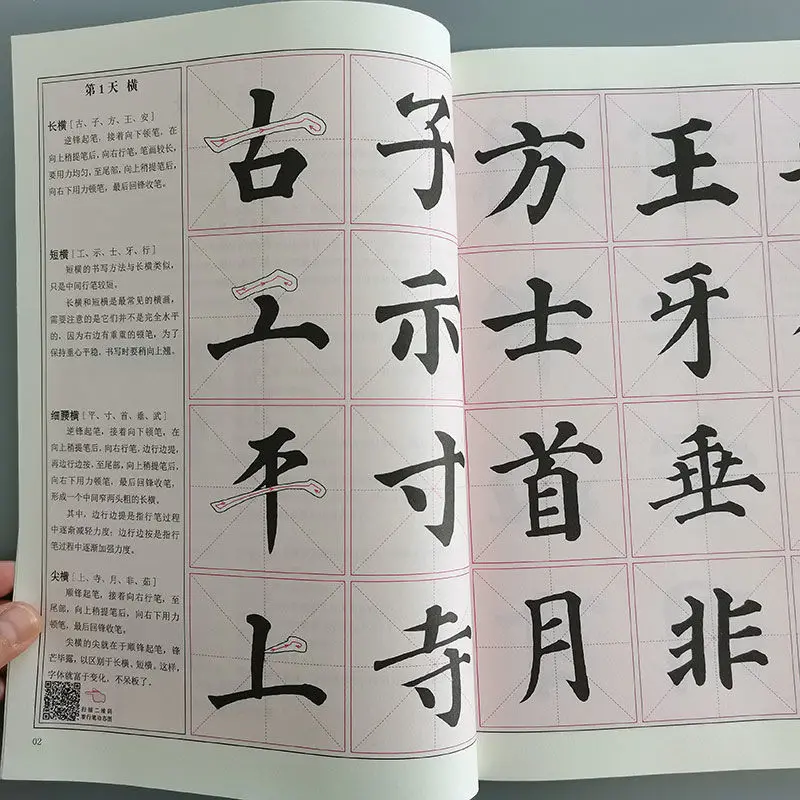 第1天 横
长横［古、子、方、王、安］
逆锋起笔，接着向下顿笔，在
向上稍提笔后，向右行笔，笔画较长，
要用力均匀，至尾部，向上稍提笔后，
向右下用力顿笔，最后回锋收笔。
古 子 方 王
短横［工、示、士、牙、行］
短横的书写方法与长横类似，
只是中间行笔较短。
长横和短横是最常见的横画，
需要注意的是它们并不是完全水平
的，因为右边有重重的顿笔，为了
保持重心平稳，书写时要稍向上翘。
工 示 士 牙
细腰横［平、寸、首、垂、武］
逆锋起笔，接着向下顿笔，在
向上稍提笔后，向右行笔，边行边提，
再边行边按，至尾部，向上稍提笔后，
向右下用力顿笔，最后回锋收笔，
形成一个中间窄两头粗的长横。
其中，边行边提是指行笔过程
中逐渐减轻力度；边行边按是指行
笔过程中逐渐加强力度。
平 寸 首 垂
尖横［上、寺、月、非、茹］
顺锋起笔，接着向右行笔，至
尾部，向上稍提笔后，向右下用力
顿笔，最后回锋收笔。
尖横的尖就在于顺锋起笔，锋
芒毕露，以区别于长横、短横。这样，
字体就富于变化，不呆板了。
上 寺 月 非
扫描二维码
看行笔动态图
02